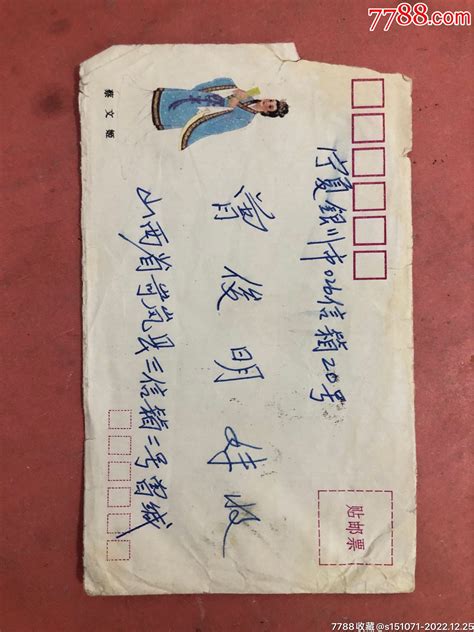 7788.com
宁夏银川市026信箱20号
曾俊明 收
山西省岢岚县三信箱二号智缄
蔡文姬
贴邮票
7788收藏@s151071-2022.12.25